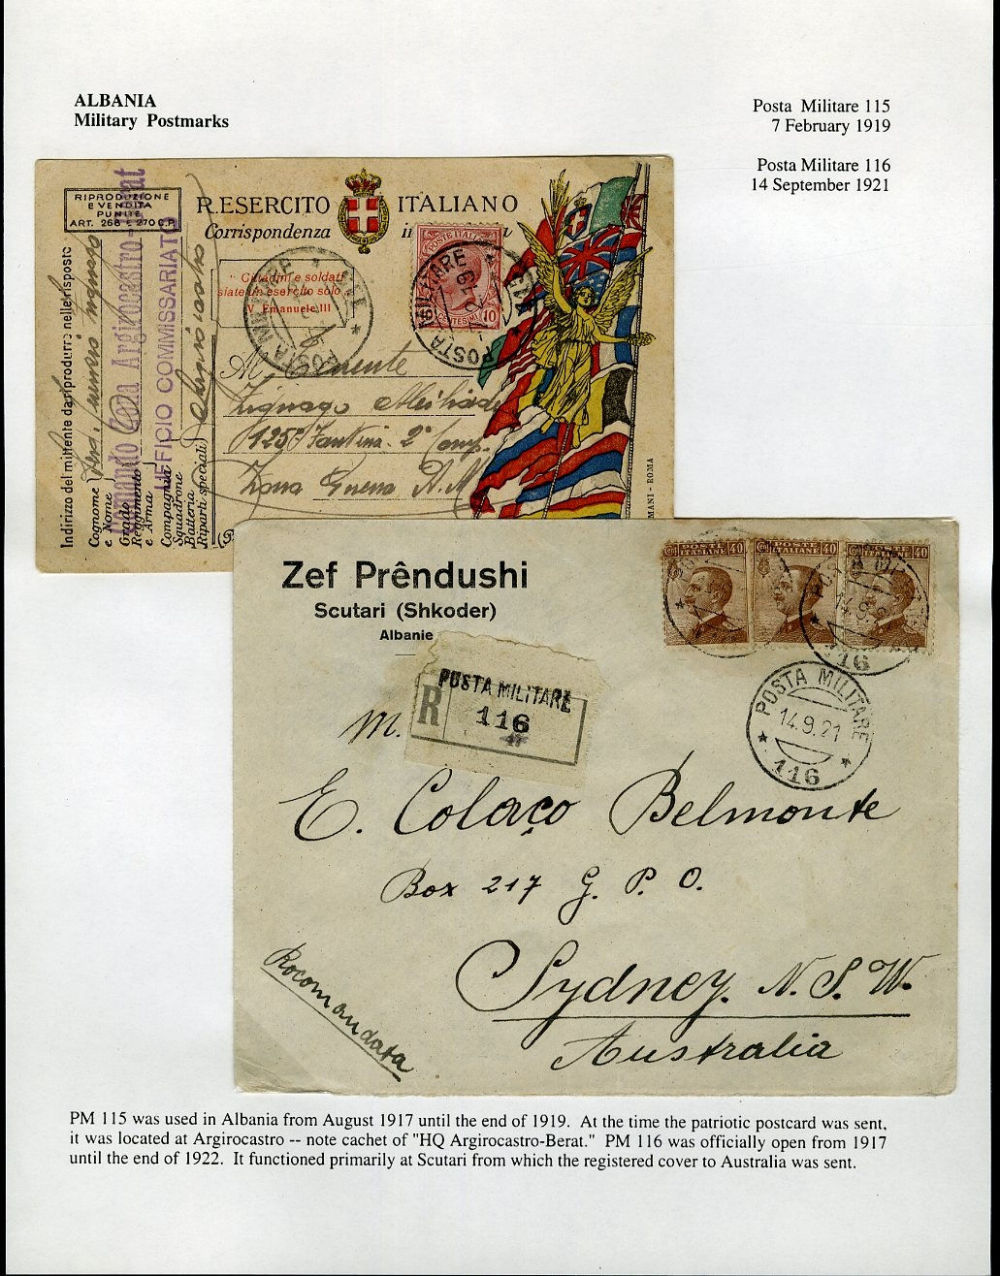 ALBANIA
Military Postmarks
Posta Militare 115
7 February 1919
Posta Militare 116
14 September 1921
RIPRODUZIONE
E VENDITA
PUNITE
ART. 268 E 270 C.P.
R. ESERCITO ITALIANO
Corrispondenza
Cittadini e soldati
siate un esercito solo
V. Emanuele III
POSTE ITALI
CENTESIMI 10
POSTA MILITARE
POSTA MILITARE
Indirizzo del mittente da riprodurre nelle risposte
Cognome
e Nome
Grado
Reggimento
e Arma
Compagnia
Squadrone
Batteria
Riparti speciali
Argirocastro
FICIO COMMISSARIATO
Zona Guerra
MANI - ROMA
Zef Prêndushi
Scutari (Shkoder)
Albanie
R
POSTA MILITARE
116
40 POSTE ITALIANE 40
POSTE ITALIANE 40
40
14.9.21
116
POSTA MILITARE
14.9.21
116
M.
E. Colaço Belmonte
Box 217 G. P. O.
Sydney. N. S. W.
Australia
Rocomandata
PM 115 was used in Albania from August 1917 until the end of 1919. At the time the patriotic postcard was sent,
it was located at Argirocastro -- note cachet of "HQ Argirocastro-Berat." PM 116 was officially open from 1917
until the end of 1922. It functioned primarily at Scutari from which the registered cover to Australia was sent.